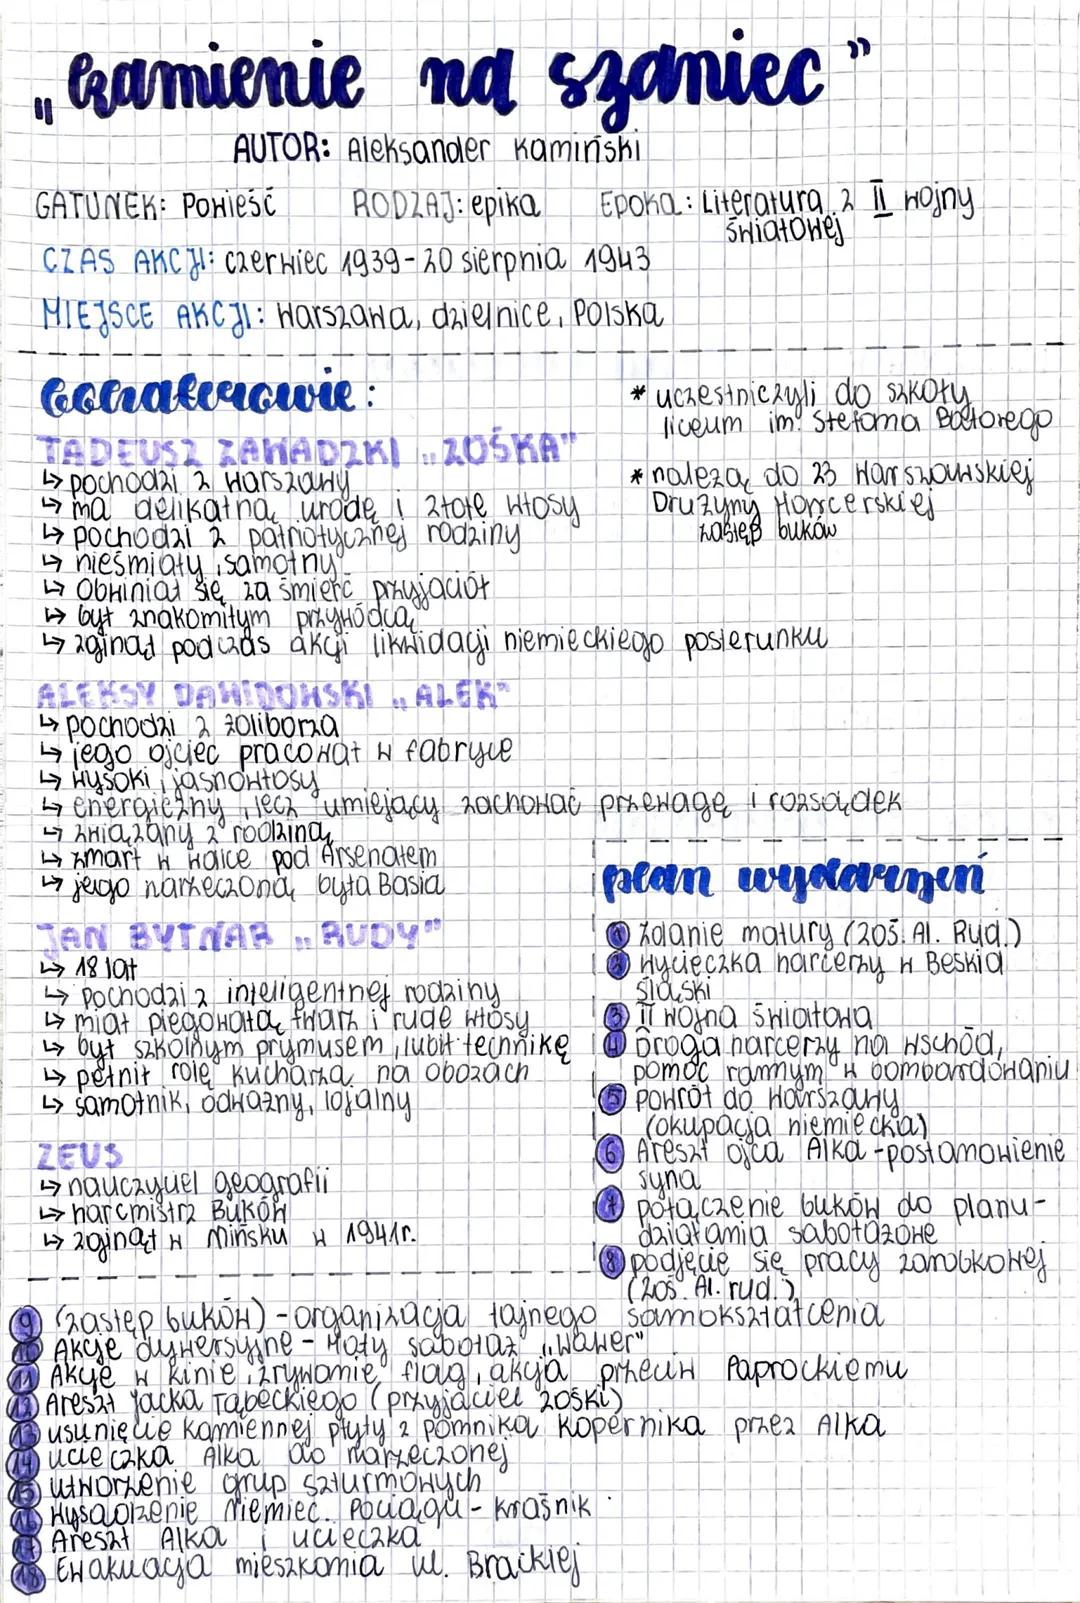 „Kamienie na szaniec”
AUTOR: Aleksander Kamiński
GATUNEK: Powieść RODZAJ: epika Epoka: Literatura z II wojny
światowej
CZAS AKCJI: czerwiec 1939-20 sierpnia 1943
MIEJSCE AKCJI: Warszawa, dzielnice, Polska
Bohaterowie:
* uczestniczyli do szkoły
liceum im. Stefana Batorego
* należą do 23 Warszawskiej
Drużyny Harcerskiej
zastęp buków
TADEUSZ ZAWADZKI „ZOŚKA"
↳ pochodzi z Warszawy
↳ ma delikatną urodę i złote włosy
↳ pochodzi z patriotycznej rodziny
↳ nieśmiały, samotny
↳ Obwiniał się za śmierć przyjaciół
↳ był znakomitym przywódcą
↳ zginął podczas akcji likwidacji niemieckiego posterunku
ALEKSY DAWIDOWSKI „ALEK"
↳ pochodzi z żoliborza
↳ jego ojciec pracował w fabryce
↳ wysoki, jasnowłosy
↳ energiczny, lecz umiejący zachować przewagę i rozsądek
↳ związany z rodziną
↳ zmarł w walce pod Arsenałem
↳ jego narzeczoną była Basia
JAN BYTNAR „RUDY"
↳ 18 lat
↳ pochodzi z inteligentnej rodziny
↳ miał piegowatą twarz i rude włosy
↳ był szkolnym prymusem, lubił technikę
↳ pełnił rolę kucharza na obozach
↳ samotnik, odważny, lojalny
ZEUS
↳ nauczyciel geografii
↳ harcmistrz Buków
↳ zginął w Mińsku w 1941r.
plan wydarzeń
1 Zdanie matury (Zoś. Al. Rud.)
2 Wycieczka harcerzy w Beskid
Śląski
3 II wojna światowa
4 Droga harcerzy na wschód,
pomoc rannym w bombardowaniu
5 powrót do Warszawy
(okupacja niemiecka)
6 Areszt ojca Alka - postanowienie
syna
7 połączenie buków do planu-
działania sabotażowe
8 podjęcie się pracy zarobkowej
(Zoś. Al. rud.)
9 (zastęp buków) - organizacja tajnego samokształcenia
10 Akcje dywersyjne - Mały sabotaż „Wawer"
11 Akcje w kinie, zrywanie flag, akcja przeciw Paprockiemu
12 Areszt Jacka Tabęckiego (przyjaciel Zośki)
13 usunięcie kamiennej płyty z pomnika Kopernika przez Alka
14 ucieczka Alka do narzeczonej
15 utworzenie grup szturmowych
16 Wysadzenie niemiec. Pociągu - kraśnik
17 Areszt Alka i ucieczka
18 Ewakuacja mieszkania ul. Brackiej